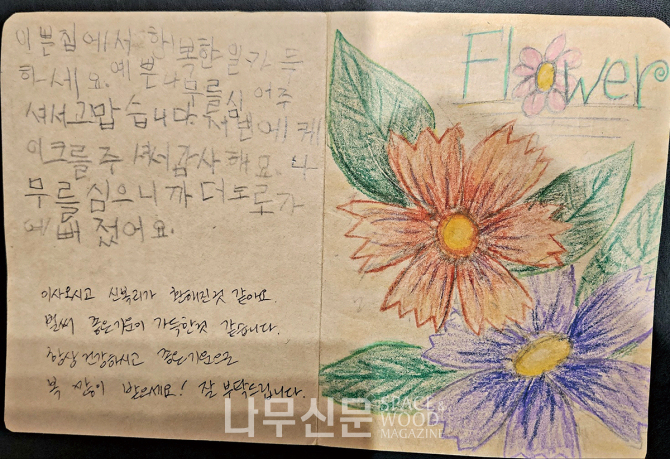 이쁜집에서 행복한 일가득
하세요. 예쁜나무를심어주
셔서고맙습니다. 저번에케
이크를주셔서감사해요. 나
무를심으니까더도로가
예뻐졌어요.
이사오시고 신복리가 환해진것 같아요.
벌써 좋은기운이 가득한것 같습니다.
항상 건강하시고 좋은기운으로
복 많이 받으세요! 잘 부탁드립니다.
Flower
나무신문 SPACE WOOD MAGAZINE